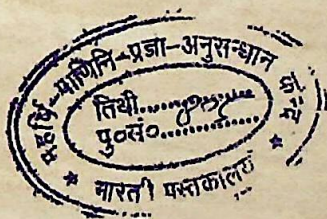 महर्षि-पाणिनि-प्रज्ञा-अनुसन्धान
तिथी..........
पु०सं०..............
* भारती पुस्तकालय *